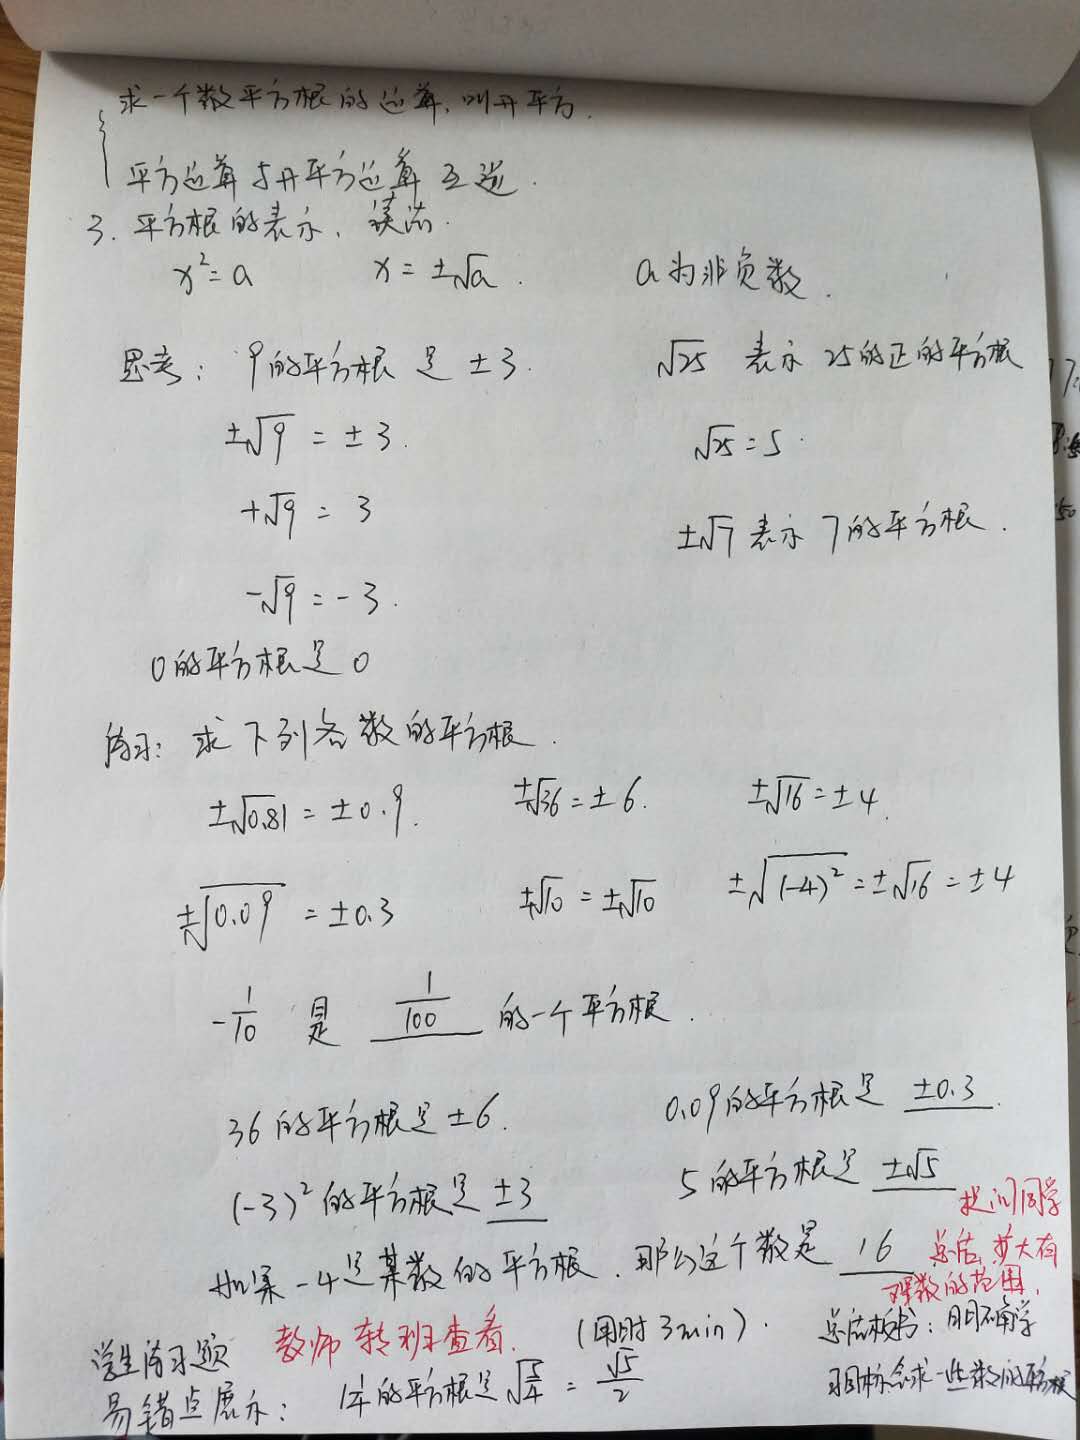 求一个数平方根的运算，叫开平方.
平方运算与开平方运算互逆.
3. 平方根的表示、读法.
x²=a x=±√a. a为非负数.
思考： 9的平方根是±3. √25 表示 25的正的平方根
±√9 = ±3. √25=5.
+√9 = 3
±√7 表示 7的平方根.
-√9 = -3.
0的平方根是0
练习：求下列各数的平方根.
±√0.81 = ±0.9. ±√36=±6. ±√16=±4.
±√0.09 = ±0.3 ±√10 = ±√10 ±√(-4)²=±√16=±4
-1/10 是 1/100 的一个平方根.
36的平方根是±6. 0.09的平方根是 ±0.3.
(-3)²的平方根是±3 5的平方根是 ±√5
提问同学
如果-4是某数的平方根. 那么这个数是 16
总结, 扩大有
理数的范围.
学生练习题 教师转班查看. (用时3min).
总结板书：明确学
易错点展示： 1¼的平方根是√5/4 = √5/2
习目标会求一些数的平方根